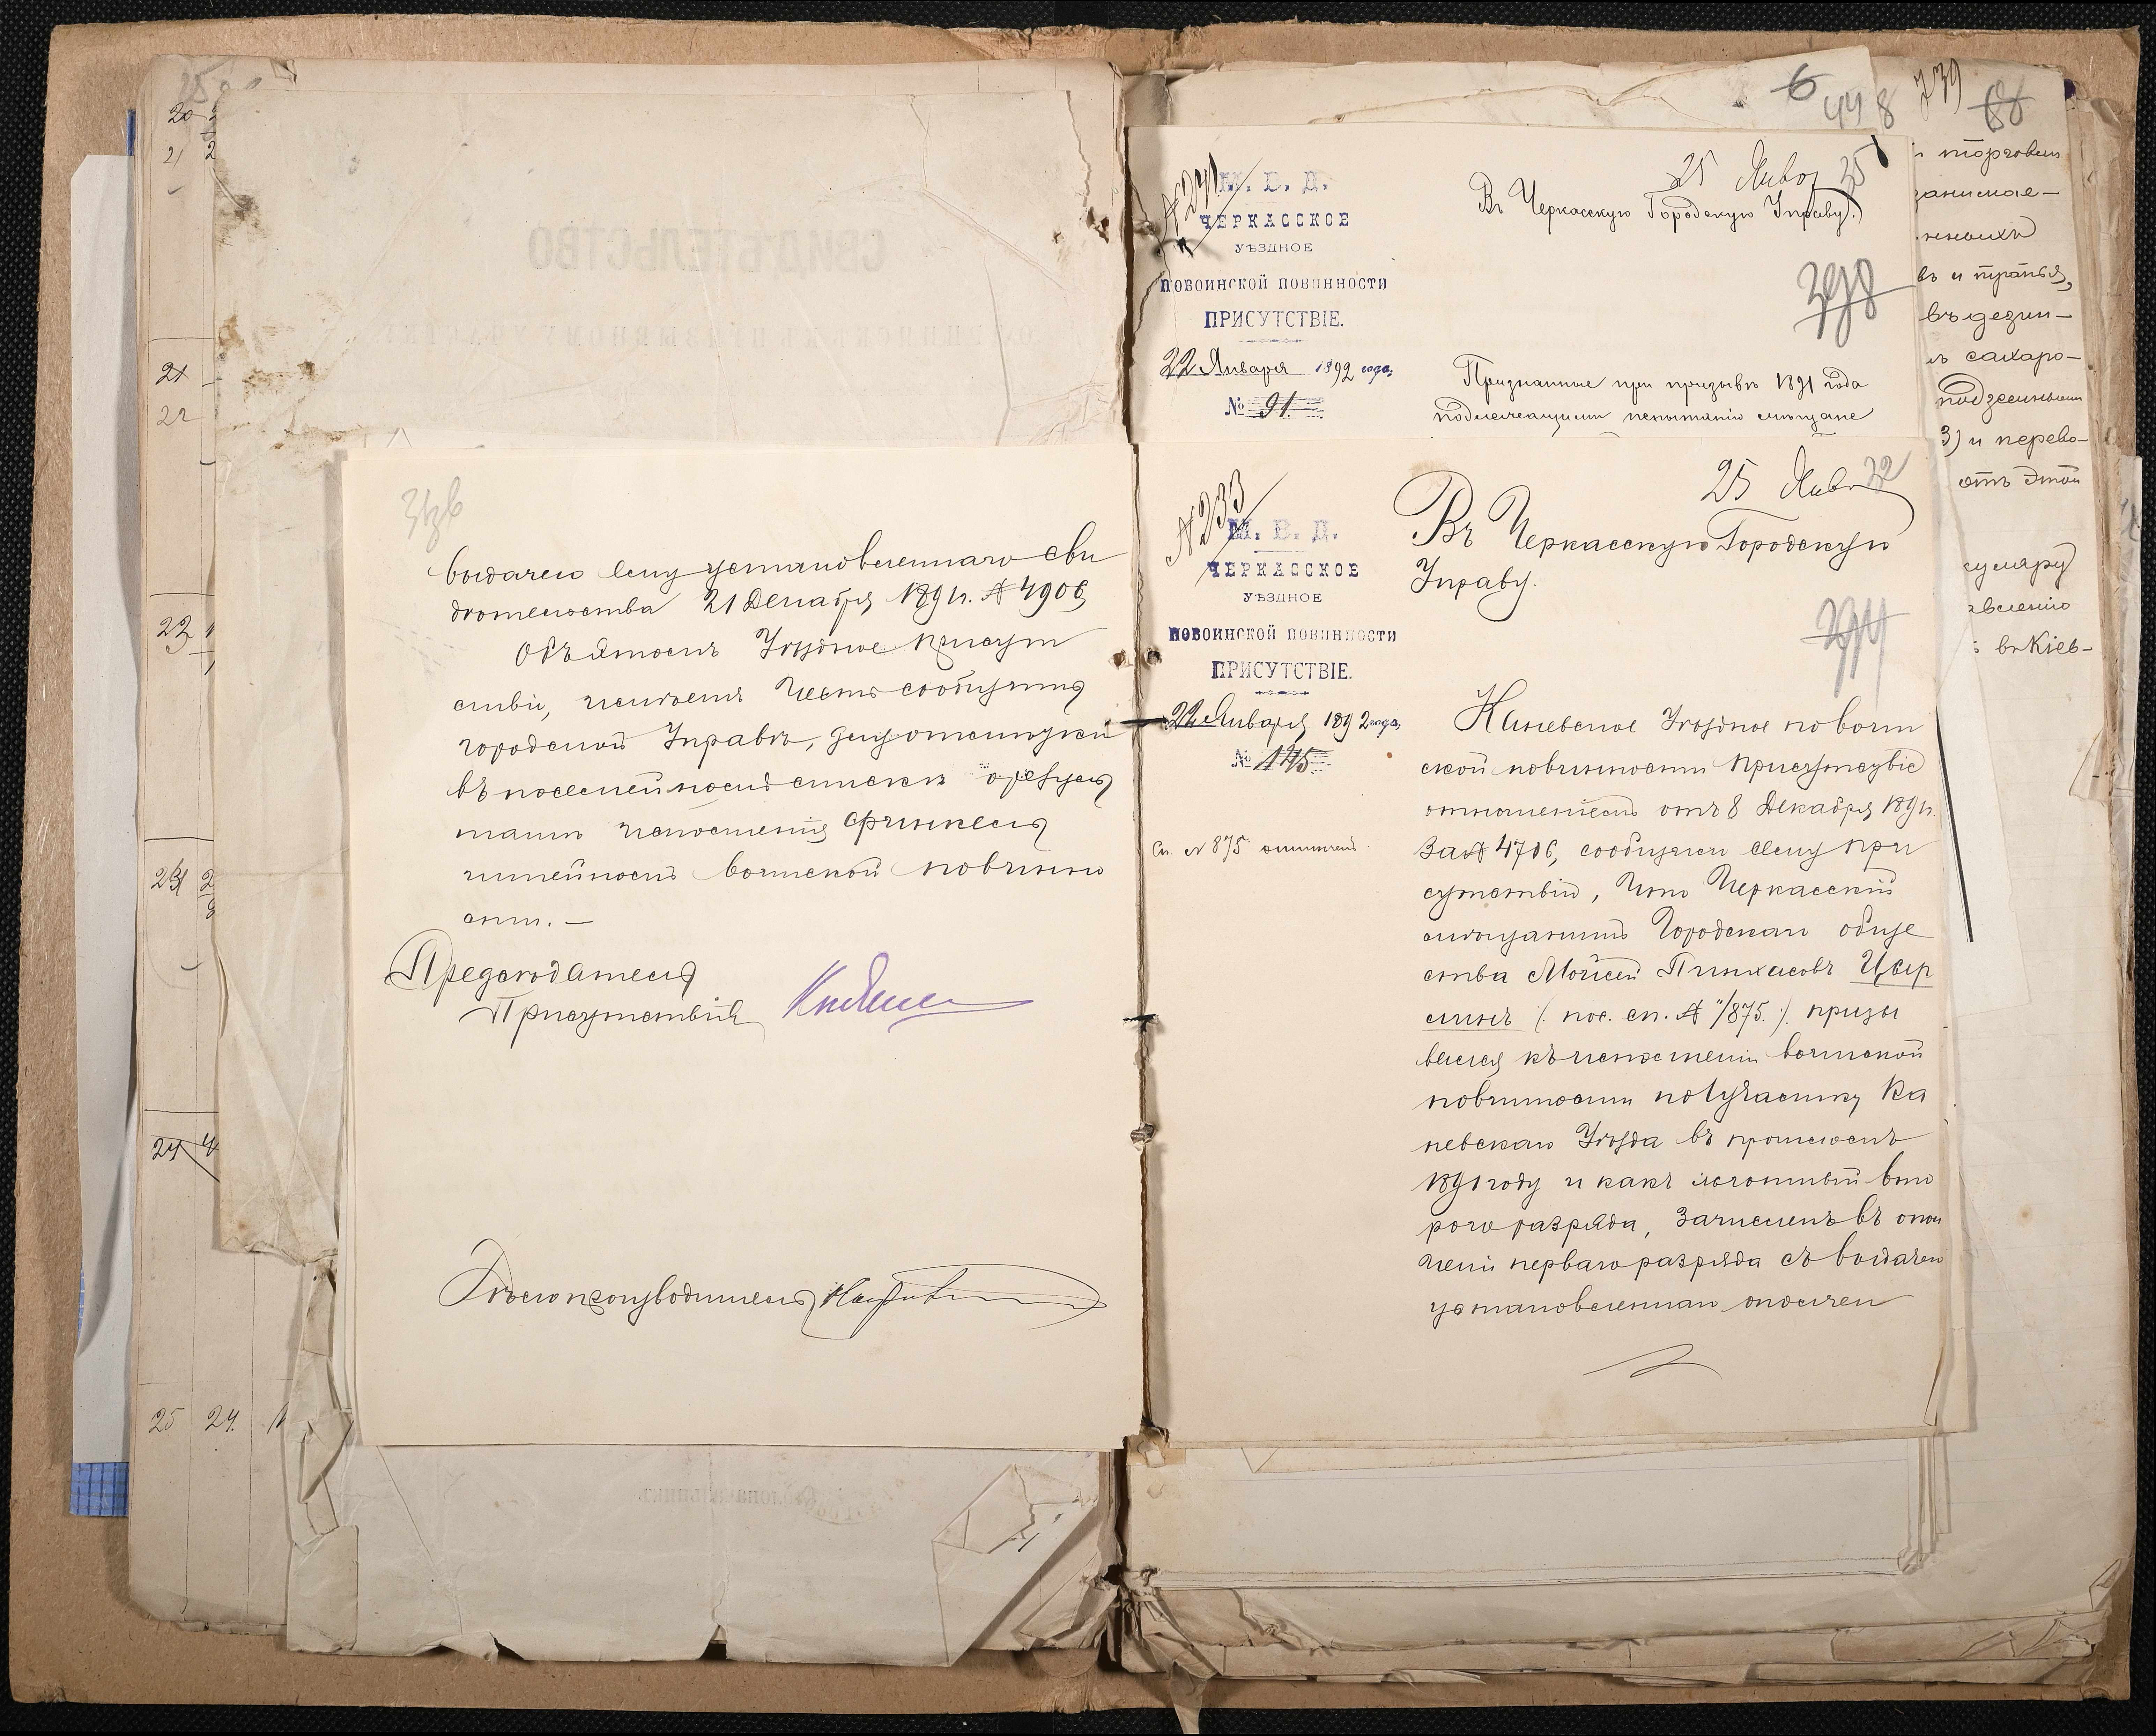 20
21
21
22
23
24
24
25 24.
выдачею ему установленнаго сви
дѣтельства 21 Декабря 1891г. № 4906
Объ этомъ Уѣздное Присут
ствіе, имѣетъ честь сообщить
городской Управѣ, для отмѣтки
въ посемейномъ спискѣ о резуль
татѣ исполненія Финкель
штейномъ воинской повинно
сти. —
Предсѣдатель
Присутствія
Дѣлопроизводитель
СВИДѢТЕЛЬСТВО
6
448
739
88
№ 241
М. В. Д.
ЧЕРКАССКОЕ
УѢЗДНОЕ
ПО ВОИНСКОЙ ПОВИННОСТИ
ПРИСУТСТВІЕ.
22 Января 1892 года,
№ 91.
25 Янвор 25
Въ Черкасскую Городскую Управу.
398
Признанные при призывѣ 1891 года
подлежащими испытанію мѣщане
№ 233
М. В. Д.
ЧЕРКАССКОЕ
УѢЗДНОЕ
ПО ВОИНСКОЙ ПОВИННОСТИ
ПРИСУТСТВІЕ.
22 Января 1892 года,
№ 145
Сп. № 875 отмѣчен.
25 Янв 32
Въ Черкасскую Городскую
Управу.
394
Каневское Уѣздное по воин
ской повинности Присутствіе
отношеніемъ отъ 8 Декабря 1891г.
за № 4706, сообщило сему При
сутствію, что Черкасскій
мѣщанинъ Городскаго обще
ства Мойсей Пинхасовъ
(: пос. сп. № 875. :) призы
вался къ исполненію воинской
повинности по 1 участку Ка
невскаго Уѣзда въ прошломъ
1891 году и какъ льготный вто
рого разряда, зачисленъ въ опол
ченіе перваго разряда съ выдачею
установленнаго ополчен
и торговли
занимае-
въ и
сахаро-
3) и перево-
отъ этой
въ Кіев-